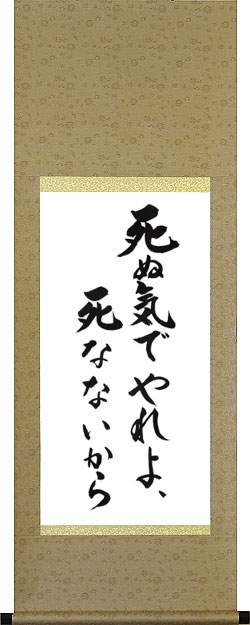 死ぬ気でやれよ、
死なないから